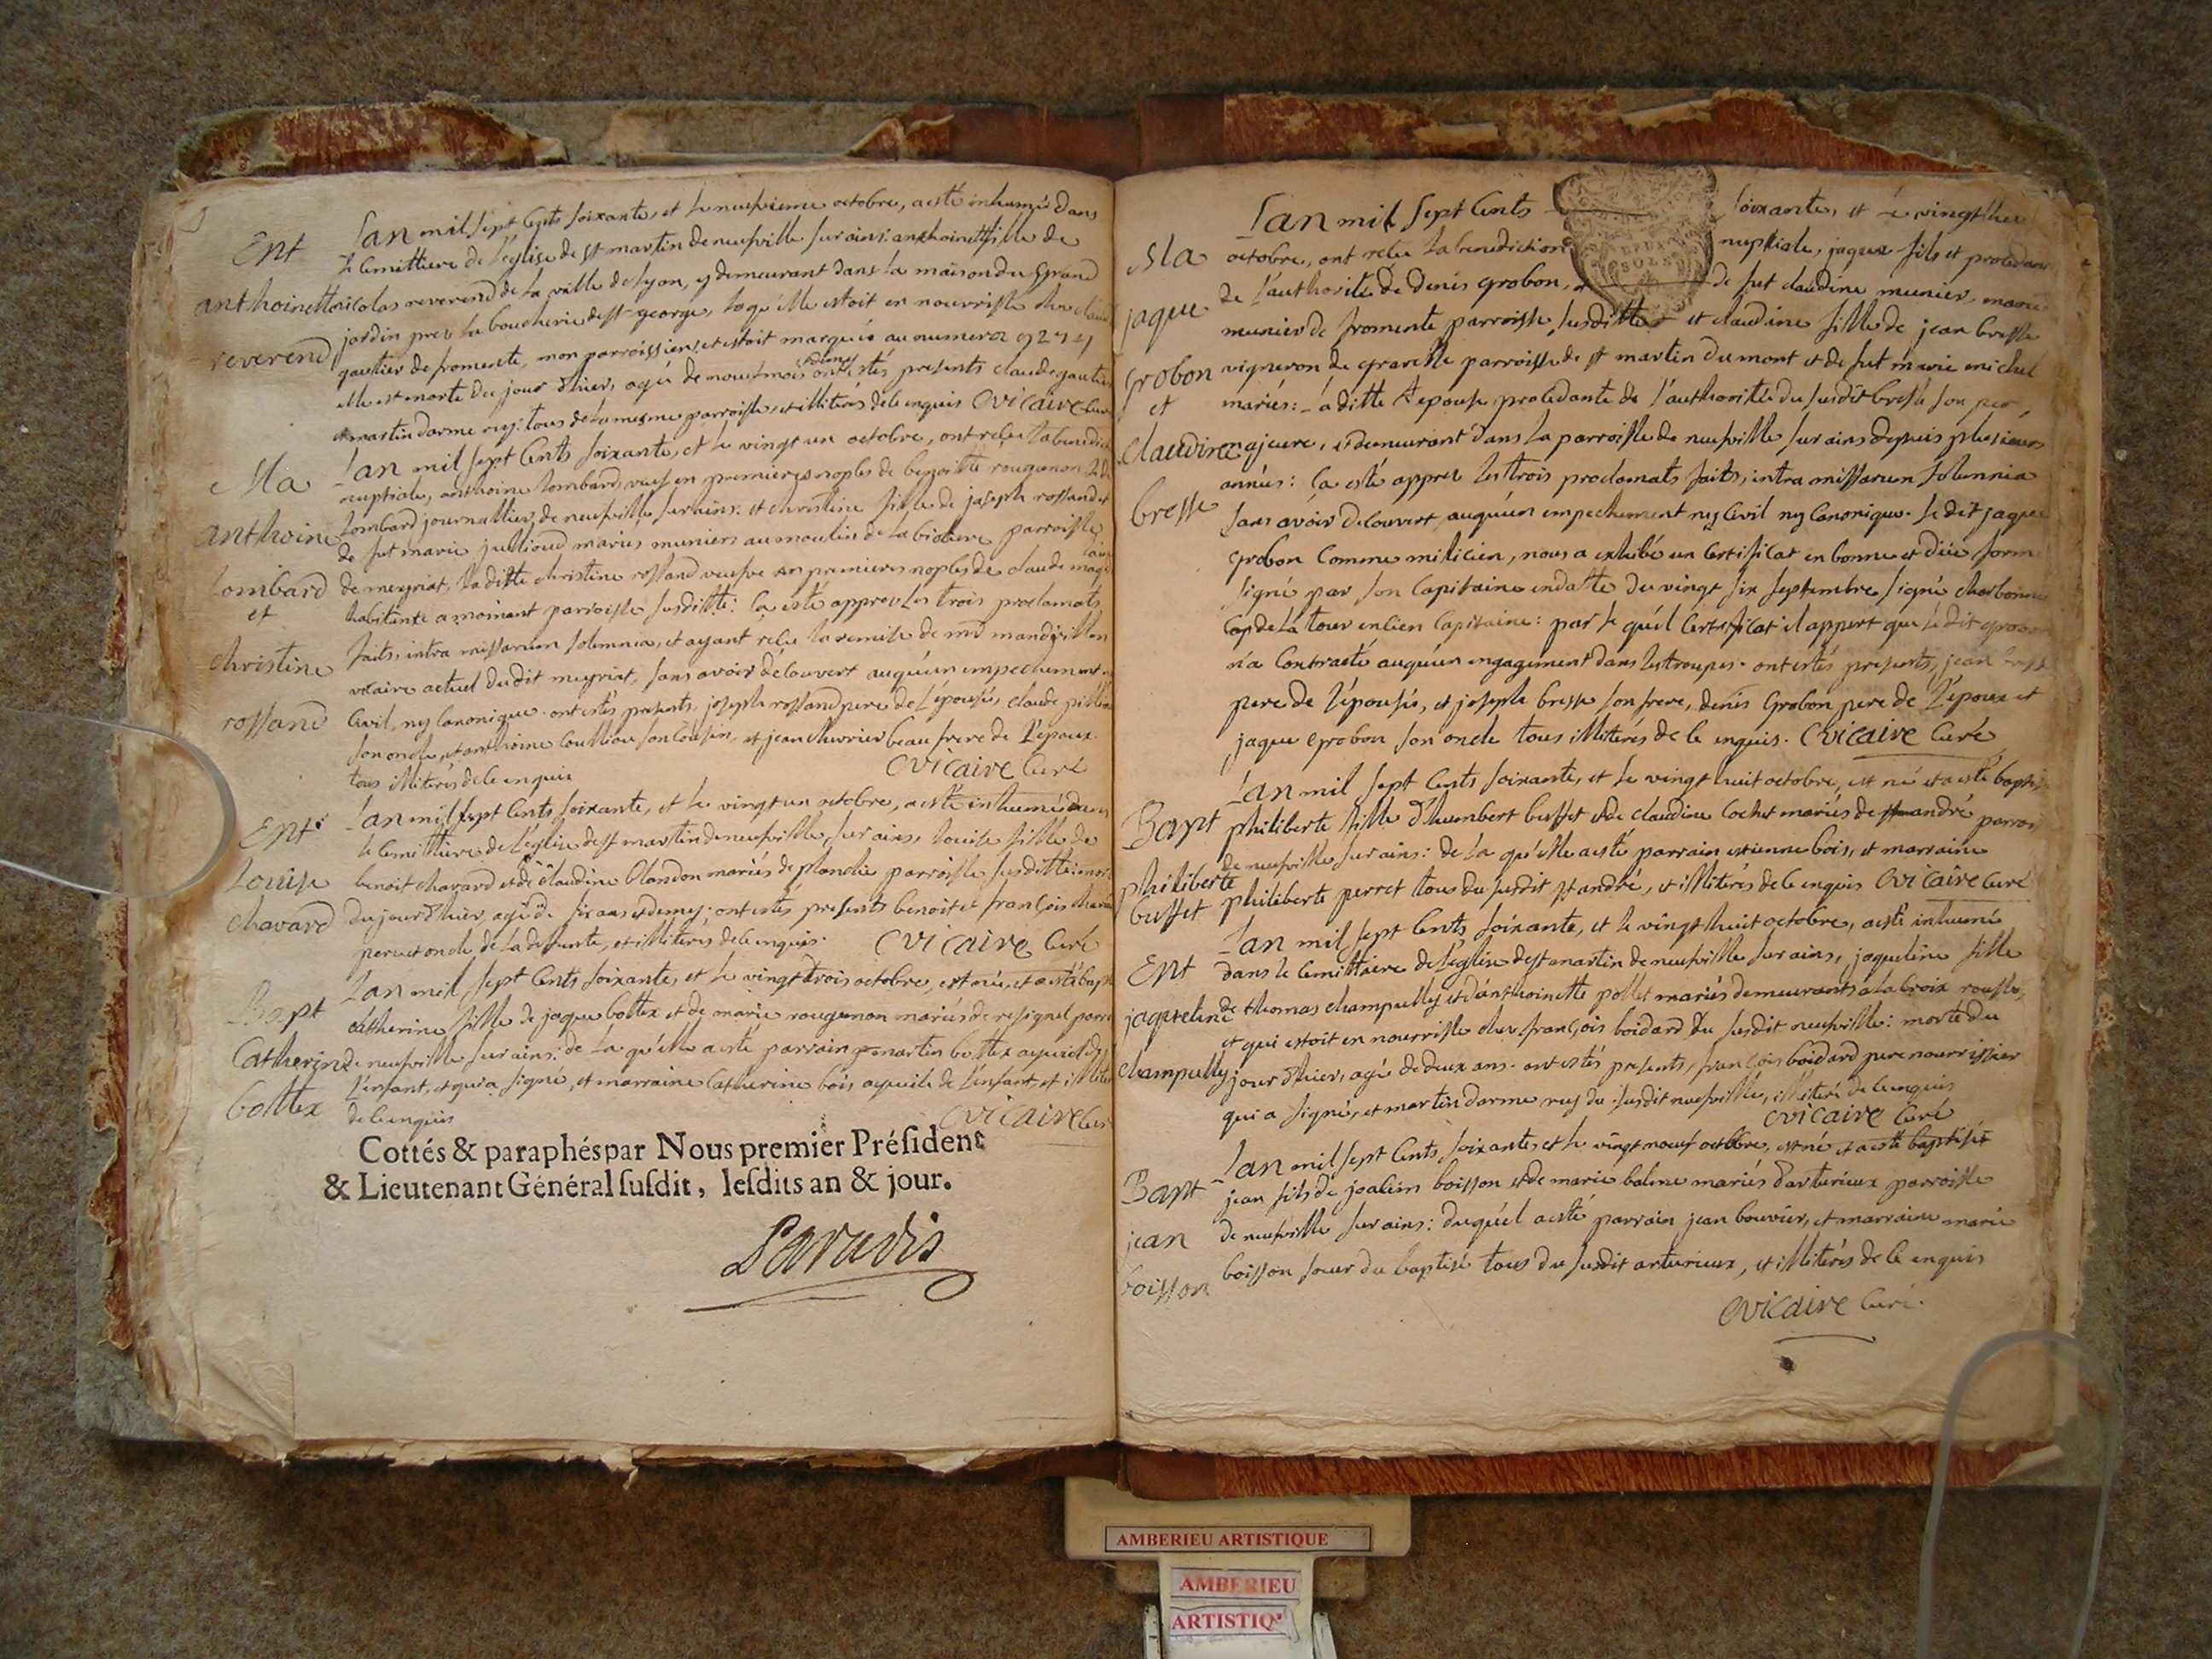 Ent
anthoinette
reverend
Lan mil sept Cents soixante, et le neufvieme octobre, a esté inhumée dans
le Cemittiere de l'église de st martin de neufville sur ains: anthoinette fille de
nicolas reverend de la ville de lyon, y demeurant dans la maison du grand
jardin prez la boucherie de st george, laqu'elle estoit en nourrisse chez claude
gautier de fromente, mon parroissien, et estoit marquée au numero
elle est morte du jour d'hier, agée de neuf mois ont estés presents claude gautier
et martin darme ruy: tous de la mesme parroisse, et illiterés de ce enquis Ovicaire Curé
Ma
anthoine
Lombard
et
christine
rossand
Lan mil sept Cents soixante, et le vingt un octobre, ont reçu la benedict
nuptiale, anthoine lombard, veuf en premieres noples de benoitte rougemon
Lombard journallier, de neufville sur ains: et christine fille de joseph rossand et
de fut marie jullioud mariés muniers au moulin de la bioliere parroisse
de meyriat, la ditte christine rossand veufve en premieres noples de claude
habitante a moinant parroisse susditte: ça esté apprez les trois proclamats
faits, intra missarum solemnia, et ayant reçu la remise de mr mandgvillon
vicaire actuel dudit meyriat, sans avoir découvert auqu'un empechement
Civil, ny Canonique. ont estés presents, joseph rossand pere de l'épousée, claude
son oncle, et anthoine soullion son Cousin, et jean chevrier beau frere de l'époux
tous illiterés de ce enquis Ovicaire Curé
Ent
Louise
chavard
Lan mil sept Cents soixante, et le vingt un octobre, a esté inhumée dans
le Cemittiere de l'église de st martin de neufville sur ains, louise fille de
benoit chavard et de claudine blandon mariés de planche parroisse susditte: morte
du jour d'hier, agée de six ans et demy; ont estés presents benoit et françois chavard
pere et oncle de la defunte, et illiterés de ce enquis. Ovicaire Curé
Bapt
Catherine
bottex
Lan mil sept Cents soixante, et le vingt trois octobre, est née, et a esté bapt
catherine fille de jaque bottex et de marie rougemon mariés de resignel parroi
de neufville sur ains: de la qu'elle a esté parrain martin bottex ayeuil de
l'enfant, et qui a signé, et marraine Catherine bois ayeuile de l'enfant, et illiterés
de ce enquis Ovicaire Curé
Cottés & paraphés par Nous premier Préſident
& Lieutenant Général ſuſdit, leſdits an & jour.
Paradis
Ma
jaque
Grobon
et
claudine
bresse
Lan mil sept Cents soixante, et le vingt huit
octobre, ont reçu la benediction nuptiale, jaques fils et procedant
de l'authorité de denis grobon, et de fut claudine munier, mariés
munier de fromente parroisse susditte et claudine fille de jean bresse
vigneron de gravelle parroisse de st martin du mont et de fut marie michel
mariés: la ditte épouse procedante de l'authorité du susdit bresse son pere,
majeure, et demeurant dans la parroisse de neufville sur ains depuis plusieurs
années: ça esté apprez les trois proclamats faits, intra missarum solemnia
sans avoir découvert auqu'un empechement ny Civil ny Canonique. le dit jaque
grobon Comme milicien, nous a exhibé un Certificat en bonne et düe forme
signé par son Capitaine en datte du vingt six septembre signé charbonne
Cop de la tour encien Capitaine: par le qu'el Certificat il appert que le dit grobon
n'a Contracté auqu'un engagement dans les troupes. ont estés presents, jean bresse
pere de l'épousée, et joseph bresse son frere, denis Grobon pere de l'époux et
jaque grobon son oncle tous illiterés de ce enquis. Ovicaire Curé
Bapt
philiberte
buffet
Lan mil sept Cents soixante, et le vingt huit octobre, est né et a esté baptis
philiberte fille d'humbert buffet et de claudine cochet mariés de st andré parroi
de neufville sur ains: de la qu'elle a esté parrain estienne bois, et marraine
philiberte perret tous du susdit st andré, et illiterés de ce enquis Ovicaire Curé
Ent
jaqueline
champully
Lan mil sept Cents soixante, et le vingt huit octobre, a esté inhumé
dans le Cemittiere de l'église de st martin de neufville sur ains, jaqueline fille
de thomas champully et d'anthoinette pollet mariés demeurants a la Croix rousse,
et qui estoit en nourrisse chez françois boidard du susdit neufville: morte du
jour d'hier, agée de deux ans. ont estés presents, françois boidard pere nourrissier
qui a signé, et martin darme ruy du susdit neufville, illiteré de ce enquis
Ovicaire Curé
Bapt
jean
boisson
Lan mil sept Cents soixante, et le vingt neuf octobre, est né et a esté baptisé
jean fils de joachim boisson et de marie balme mariés d'arturieux parroisse
de neufville sur ains: duqu'el a esté parrain jean bouvier, et marraine marie
boisson soeur du baptisé tous du susdit arturieux, et illiterés de ce enquis
Ovicaire Curé.
AMBERIEU ARTISTIQUE
AMBERIEU
ARTISTIQ